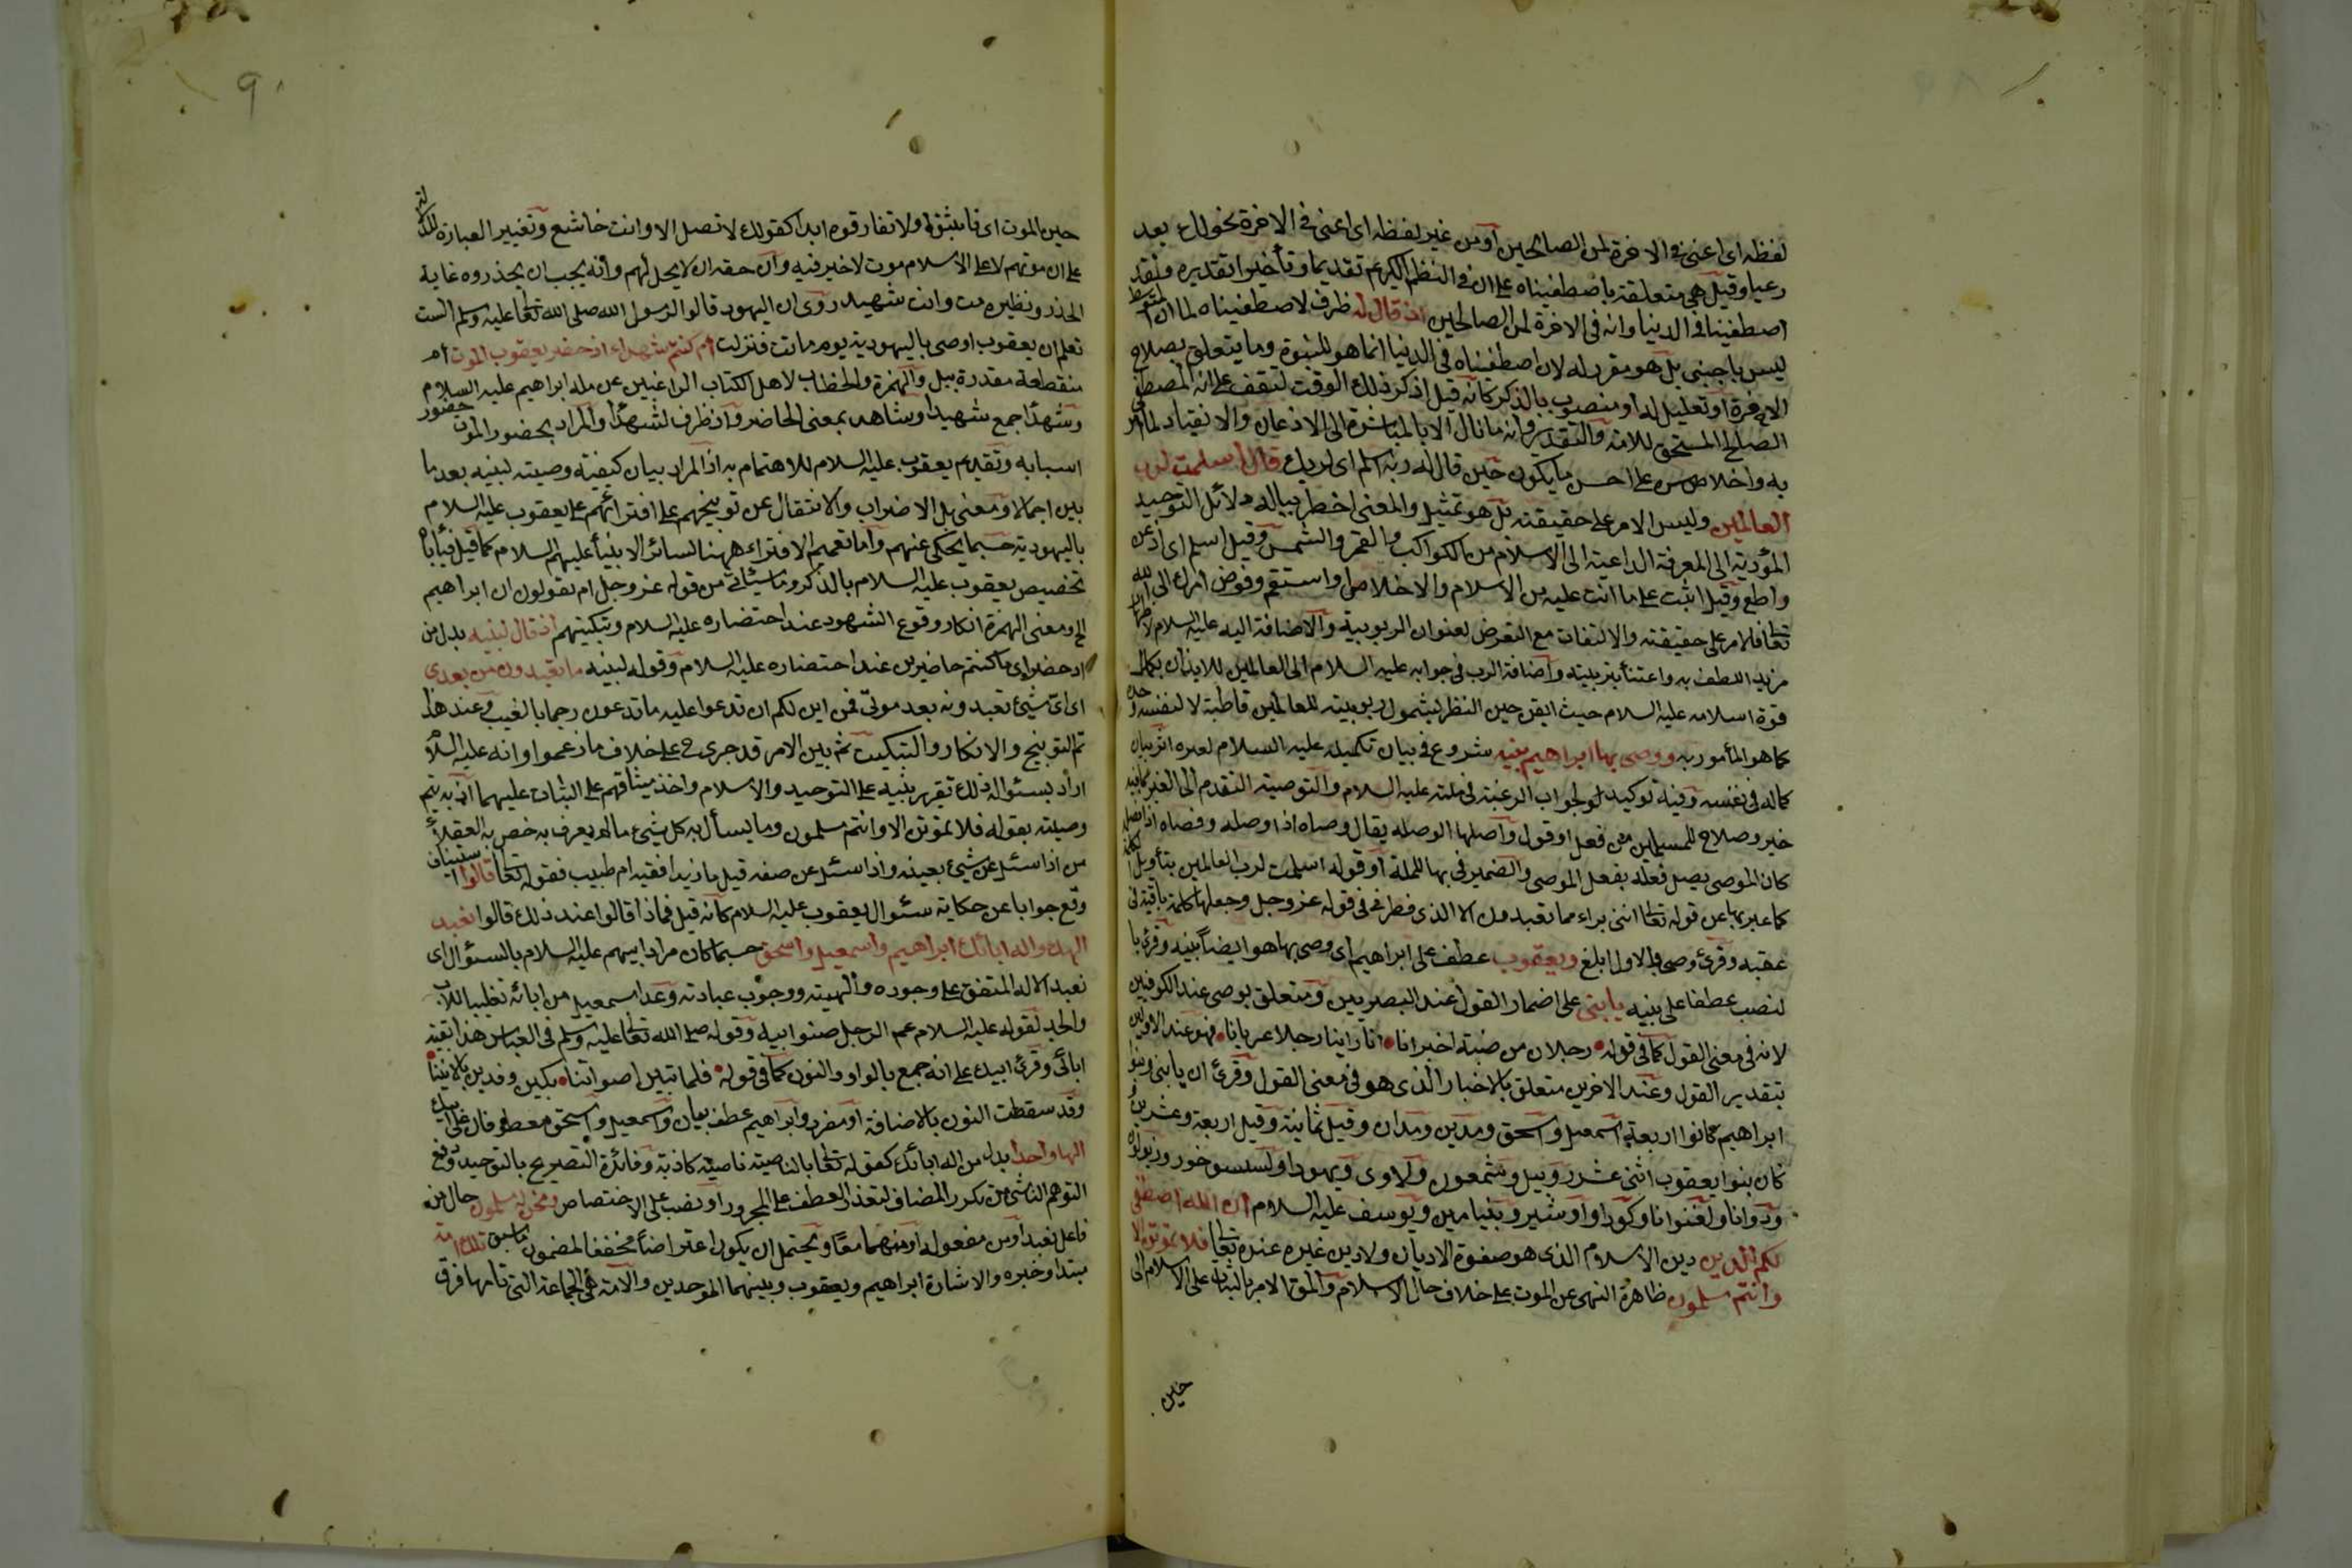 لفظه اى اعنى فى الاخرة لمن الصالحين او من غير لفظه اى اعنى فى الاخرة نحو لك بعد
رعيا وقيل هى متعلقة باصطفيناه على ان فى النظم الكريم تقديما وتأخيرا تقديره ولقد
اصطفيناه فى الدنيا وانه فى الاخرة لمن الصالحين اذ قال له ظرف لاصطفيناه لما ان المتوسط
ليس باجنبى بل هو مقرر له لان اصطفيناه فى الدنيا انما هو للنبوة وما يتعلق بصلاح
الاخرة او تعليل له او منصوب بالذكر كانه قيل اذكر ذلك الوقت لتقف على انه المصطفى
الصالح المستحق للامة والتقدير وانه ما نال الا بالمبادرة الى الاذعان والانقياد لما امر
به واخلاص سره على احسن ما يكون حين قال له ربه اسلم اى لربك قال اسلمت لرب
العالمين وليس الامر على حقيقته بل هو تمثيل والمعنى اخطر بباله دلائل التوحيد
المؤدية الى المعرفة الداعية الى الاسلام من الكواكب والقمر والشمس وقيل اسلم اى اذعن
واطع وقيل اثبت على ما انت عليه من الاسلام والاخلاص او استقم وفوض امرك الى الله
تعالى فالامر على حقيقته والالتفات مع التعرض لعنوان الربوبية والاضافة اليه عليه السلام لاظهار
مزيد اللطف به واعتنأ بتربيته واضافة الرب فى جوابه عليه السلام الى العالمين للايذان بكمال
قوة اسلامه عليه السلام حيث ايقن حين النظر بشمول ربوبيته للعالمين قاطبة لا لنفسه وحده
كما هو المأمور به ووصى بها ابراهيم بنيه شروع فى بيان تكميله عليه السلام لغيره اثر بيان
كماله فى نفسه وفيه توكيد لوجوب الرغبة فى ملته عليه السلام والتوصية التقدم الى الغير بما فيه
خير وصلاح للمسلمين من فعل او قول واصلها الوصله يقال وصاه اذا وصله وفصاه اذا فصله
كان الموصى يصل فعله بفعل الموصى والضمير فى بها للملة او قوله اسلمت لرب العالمين بتأويل الكلمة
كما عبر بها عن قوله تعالى اننى براء مما تعبدون الا الذى فطرنى فى قوله عز وجل وجعلها كلمة باقية فى
عقبه وقرئ وصى والاول ابلغ ويعقوب عطف على ابراهيم اى وصى بها هو ايضا بنيه وقرئ با
لنصب عطفا على بنيه يا بنى على اضمار القول عند البصريين ومتعلق بوصى عند الكوفيين
لانه فى معنى القول كما فى قوله رجلان من ضبة اخبرانا انا راينا رجلا عريانا فهو عند الاولين
بتقدير القول وعند الاخرين متعلق بالاخبار الذى هو فى معنى القول وقرئ ان يا بنى وبنوا
ابراهيم كانوا اربعة اسمعيل واسحق ومدين ومدان وقيل ثمانية وقيل اربعة وعشرين
كان بنوا يعقوب اثنى عشر روبيل وشمعون ولاوى ويهودا
عليه السلام ان الله اصطفى
لكم الدين دين الاسلام الذى هو صفوة الاديان ولا دين غيره عنده تعالى فلا تموتن الا
وانتم مسلمون ظاهره النهى عن الموت على خلاف حال الاسلام والمق الامر بالثبات على الاسلام الى
حين
حين الموت اى فاثبتوا ولا تفارقوه ابدا كقولك لا تصل الا وانت خاشع وتغيير العبارة للدلالة
على ان موتهم لا على الاسلام موت لا خير فيه وان حقه ان لا يحل لهم وانه يجب ان يحذروه غاية
الحذر ونظيره مت وانت شهيد روى ان اليهود قالوا لرسول الله صلى الله تعالى عليه وسلم الست
تعلم ان يعقوب اوصى باليهودية يوم مات فنزلت ام كنتم شهداء اذ حضر يعقوب الموت ام
منقطعة مقدرة ببل والهمزة والخطاب لاهل الكتاب الراغبين عن ملة ابراهيم عليه السلام
وشهدا جمع شهيد او شاهد بمعنى الحاضر واذ ظرف لشهدا والمراد بحضور الموت حضور
اسبابه وتقديم يعقوب عليه السلام للاهتمام به اذ المراد بيان كيفية وصيته لبنيه بعد ما
بين اجمالا ومعنى بل الاضراب والانتقال عن توبيخهم على افترائهم على يعقوب عليه السلام
باليهودية حسبما يحكى عنهم واما تعميم الافتراء ههنا لسائر الانبيأ عليهم السلام كما قيل فيأباه
تخصيص يعقوب عليه السلام بالذكر وما سيأتى من قوله عز وجل ام تقولون ان ابراهيم
الخ ومعنى الهمزة انكار وقوع الشهود عند احتضاره عليه السلام وتبكيتهم اذ قال لبنيه بدل من
اذ حضر اى ما كنتم حاضرين عند احتضاره عليه السلام وقوله لبنيه ما تعبدون من بعدى
اى اى شيئ تعبدونه بعد موتى فمن اين لكم ان تدعوا عليه ما تدعون رجما بالغيب وعند هذا
تم التوبيخ والانكار والتبكيت ثم بين الامر قد جرى ح على خلاف ما زعموا وانه عليه السلام
اراد بسئواله ذلك تقرير بنيه على التوحيد والاسلام واخذ ميثاقهم على الثبات عليهما اذ به يتم
وصيته بقوله فلا تموتن الا وانتم مسلمون وما يسأل به كل شيئ ما لم يعرف به خص به العقلأ
من اذا سئل عن شيئ بعينه واذا سئل عن صفه قيل ما زيد افقيه ام طبيب فقوله تعالى قالوا استيناف
وقع جوابا عن حكاية سئوال يعقوب عليه السلام كانه قيل فماذا قالوا عند ذلك قالوا نعبد
الهك واله ابائك ابراهيم واسمعيل واسحق حسبما كان مراد ابيهم عليه السلام بالسئوال اى
نعبد الاله المتفق على وجوده والهيته ووجوب عبادته وعد اسمعيل من ابائه تغليبا للاب
والجد لقوله عليه السلام عم الرجل صنو ابيه وقوله صلى الله تعالى عليه وسلم فى العباس هذا بقية
ابائى وقرئ ابيك على انه جمع بالواو والنون كما فى قوله فلما تبين اصواتنا بكين وفدين بالابينا
وقد سقطت النون بالاضافة او مفرد وابراهيم عطف بيان واسمعيل واسحق معطوفان على ابيك
الها واحدا بدل من اله ابائك كقوله تعالى بالناصية ناصية كاذبة وفائدة التصريح بالتوحيد دفع
التوهم الناشى من تكرر المضاف لتعذر العطف على المجرور او نصب على الاختصاص ونحن له مسلمون حال من
فاعل نعبد او من مفعوله او منهما معا ويحتمل ان يكون اعتراضا محققا لمضمون ما سبق تلك امة
مبتدا وخبره والاشارة ابراهيم ويعقوب وبينهما الموحدين والامة هى الجماعة التى تأمها فرق